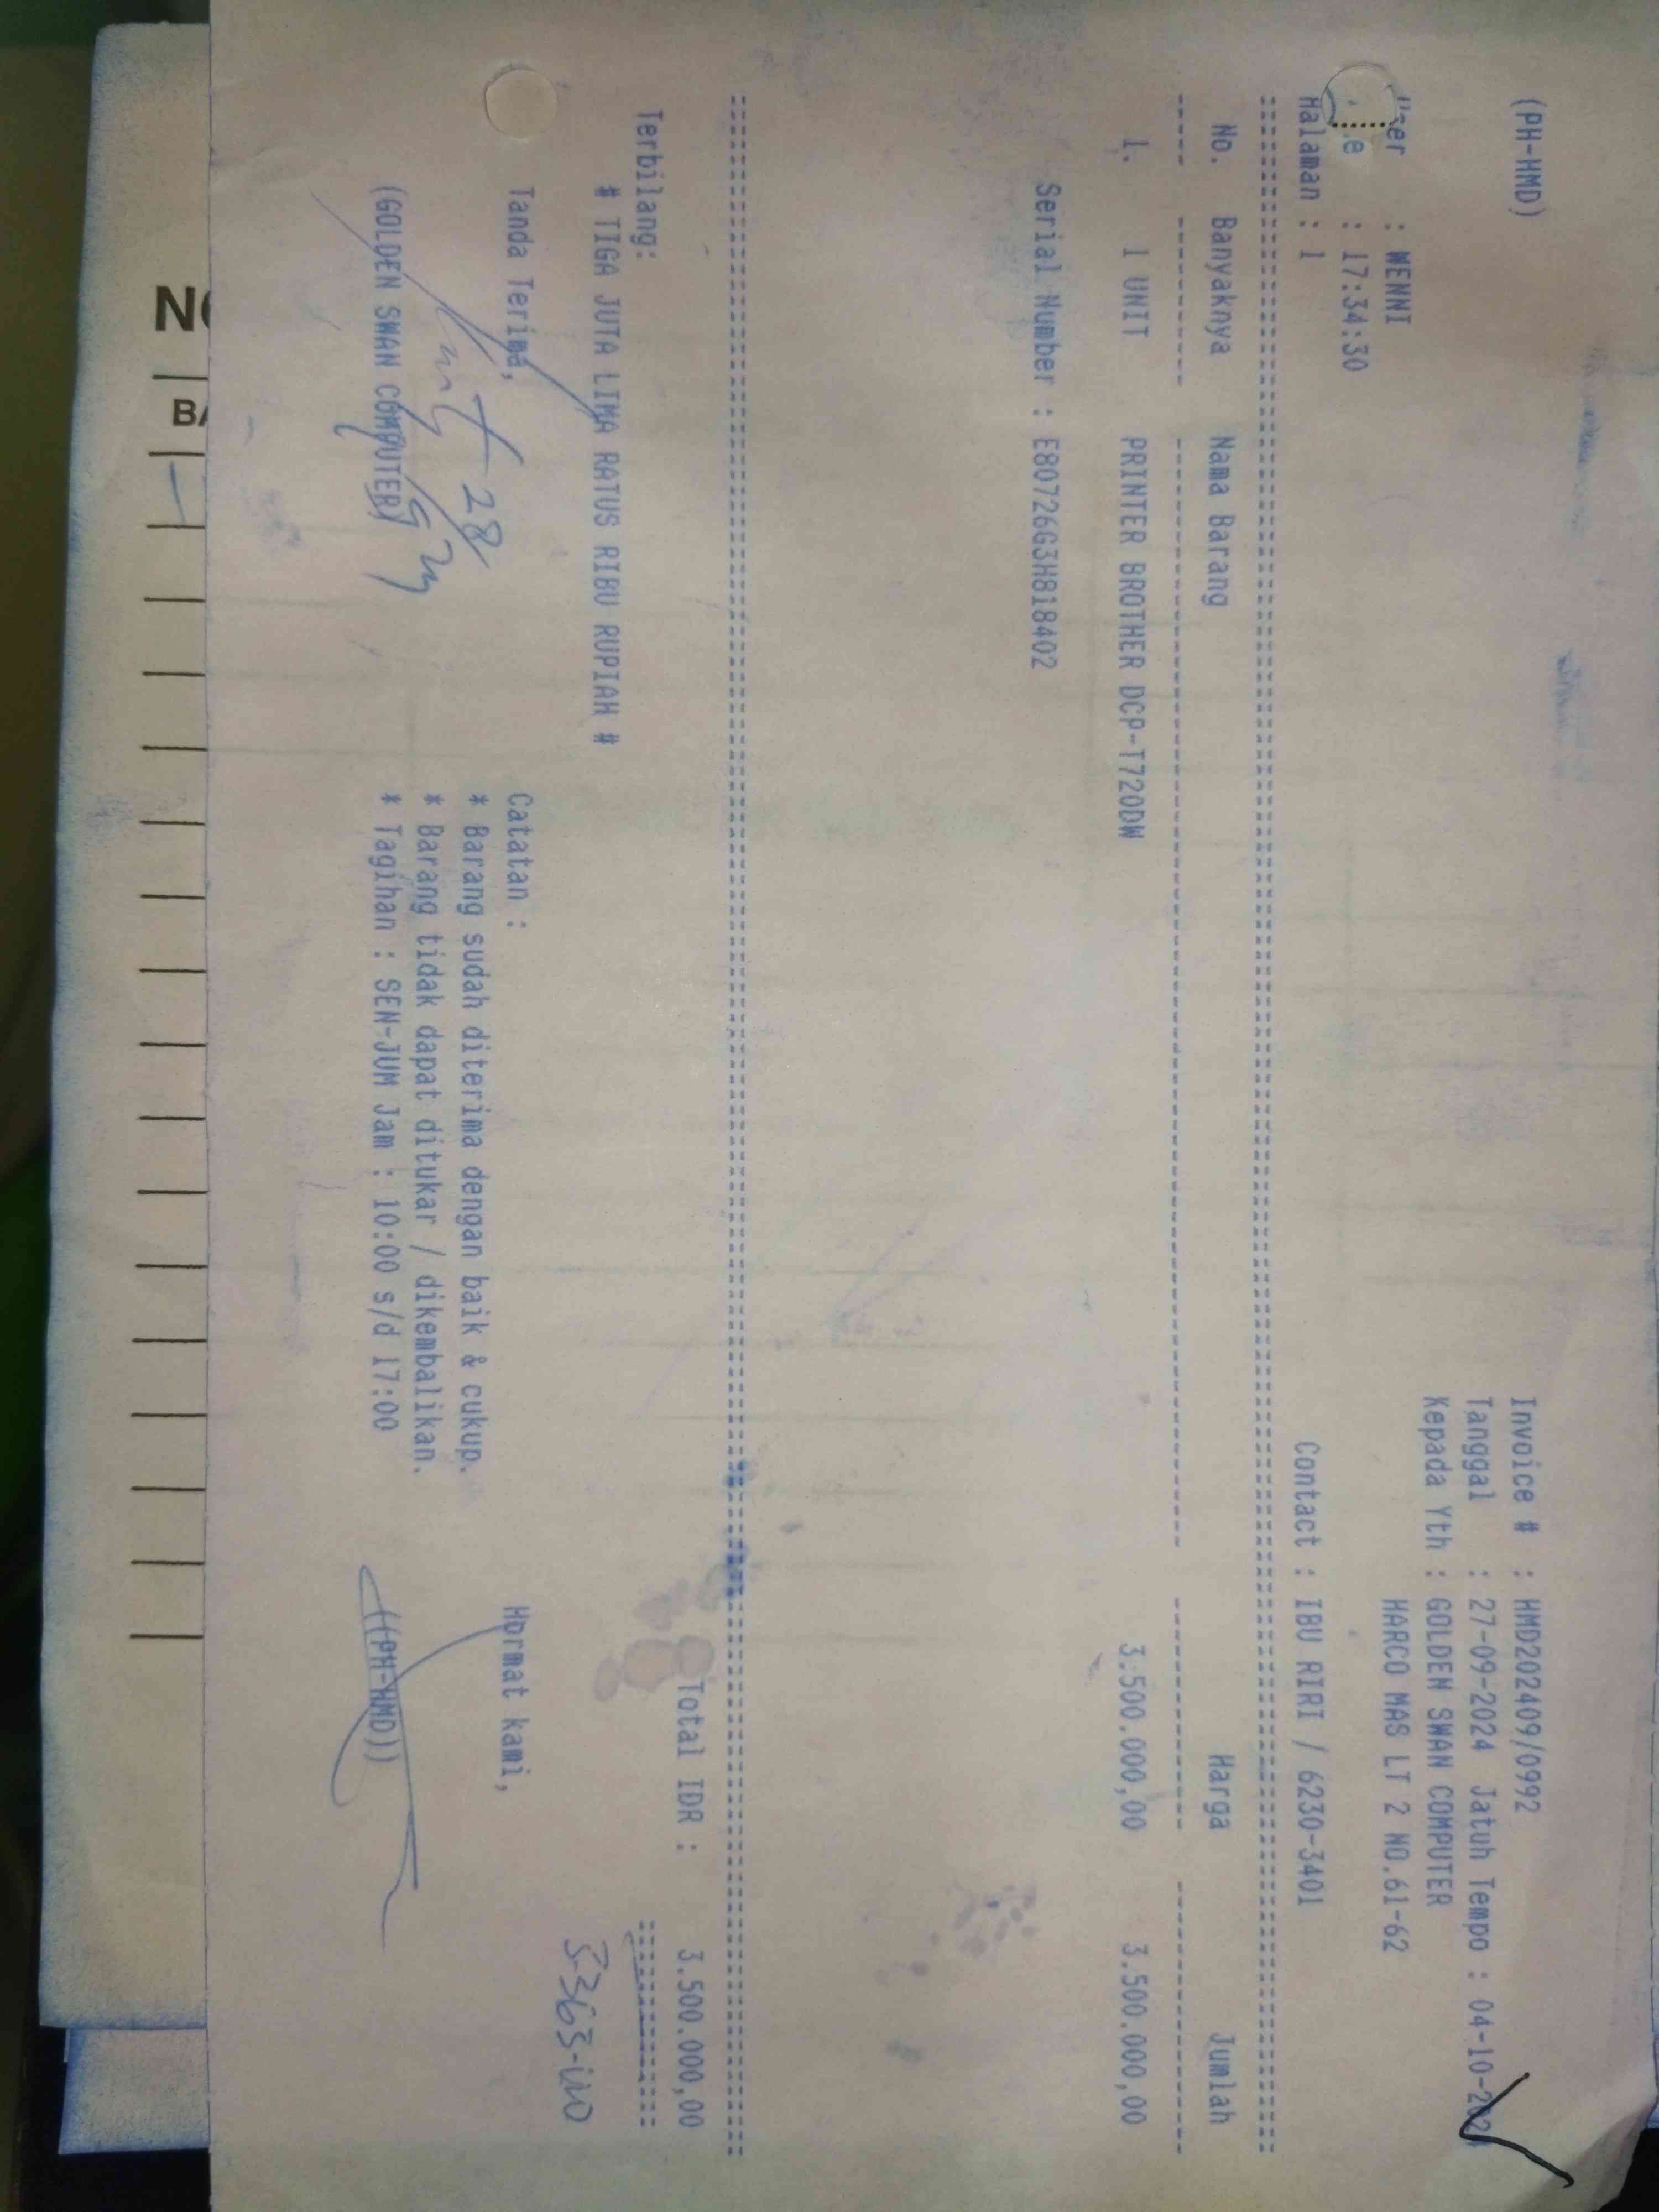 (PH-HMD)
Invoice # : HMD202409/0992
Tanggal : 27-09-2024 Jatuh Tempo : 04-10-202
Kepada Yth : GOLDEN SWAN COMPUTER
User : WENNI
HARCO MAS LT 2 NO.61-62
: 17:34:30
Halaman : 1
Contact : IBU RIRI / 6230-3401
No. Banyaknya Nama Barang Harga Jumlah
1. 1 UNIT PRINTER BROTHER DCP-T720DW 3.500.000,00 3.500.000,00
Serial Number : E80726G3H818402
Terbilang:
Total IDR : 3.500.000,00
# TIGA JUTA LIMA RATUS RIBU RUPIAH #
Tanda Terima,
Catatan :
Hormat kami,
* Barang sudah diterima dengan baik & cukup.
* Barang tidak dapat ditukar / dikembalikan.
* Tagihan : SEN-JUM Jam : 10:00 s/d 17:00
(GOLDEN SWAN COMPUTER)
((PH-HMD))
28/9